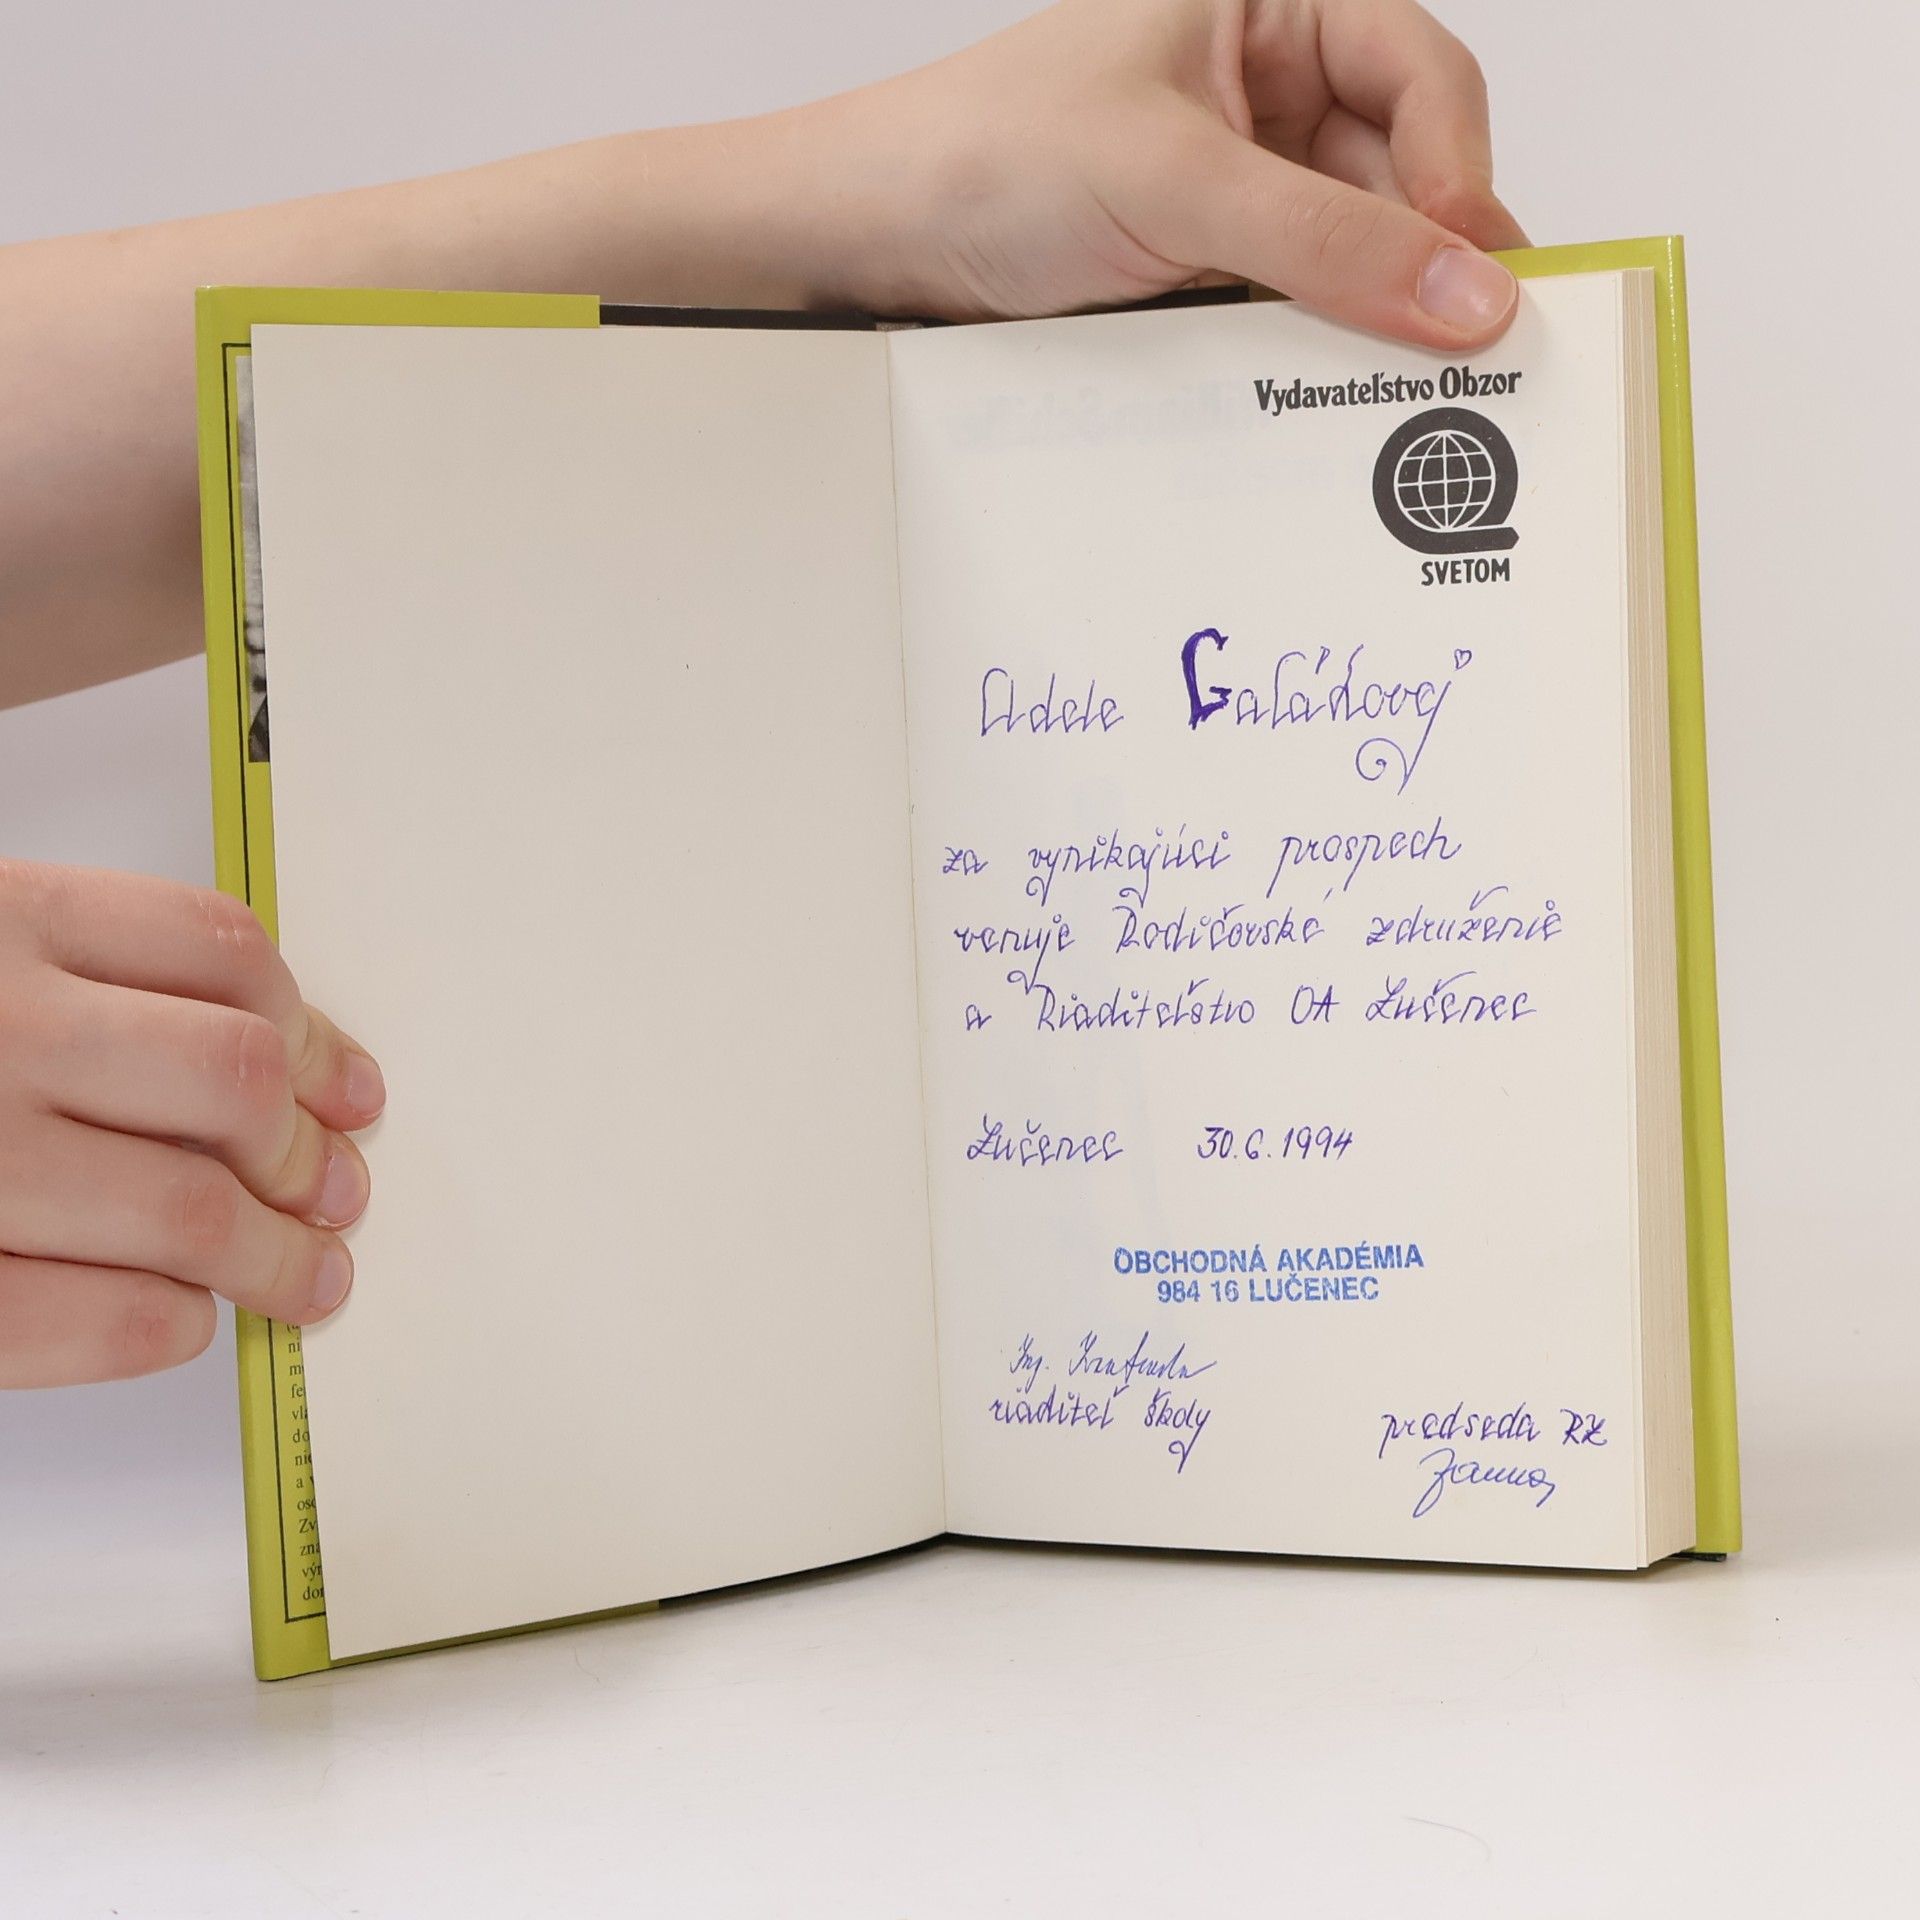 Vydavateľstvo Obzor
SVETOM
Adele Galádovej
za vynikajúci prospech
venuje Rodičovské združenie
a Riaditeľstvo OA Lučenec
Lučenec 30.6.1994
OBCHODNÁ AKADÉMIA
984 16 LUČENEC
Ing.
riaditeľ školy
predseda RZ